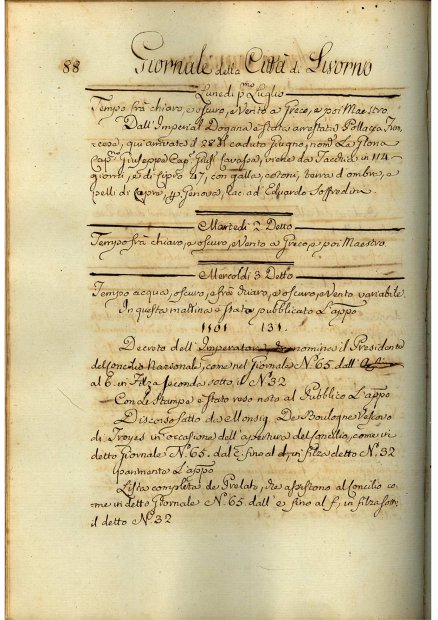 88 Giornale della Città di Livorno
Lunedì pmo Luglio
Tempo frà chiaro, e oscuro, e Vento a Greco, e poi Maestro.
Dall' Imperial Dogana è stata arrestata Pollacca Fran
cese, qui arrivata il 28 caduto Giugno, nom.
Cap.no Giuseppe viene da in 114
giorni, e di Cipro 47, con galla, cotoni, terra d'ombra, e
pelli di Capre, p Genova, rac. ad Eduardo Soffredini.
Martedì 2 Detto
Tempo frà chiaro, e oscuro, e Vento a Greco, e poi Maestro.
Mercoldì 3 Detto
Tempo acqua, oscuro, e frà chiaro, e oscuro, e Vento variabile.
In questa mattina è stato pubblicato L'app.o
131.
Decreto dell' Imperatore nomina il Presidente
del Concilio Nazionale, come nel Giornale N.o 65 dall'
al 6. in Filza seconda sotto il N.o 32
Con le Stampe è stato reso noto al Pubblico L'app.o
Discorso fatto da Monsig. De Boulogne Vescovo
di Troyes in occasione dell' apertura del Concilio, come in
detto Giornale N.o 65. dal c. fino al d, in filza detto N.o 32
parimente L'app.o
Lista completa de Prelati, che assistono al Concilio co
me in detto Giornale N.o 65. dall' e fino al f, in filza sotto
il detto N.o 32